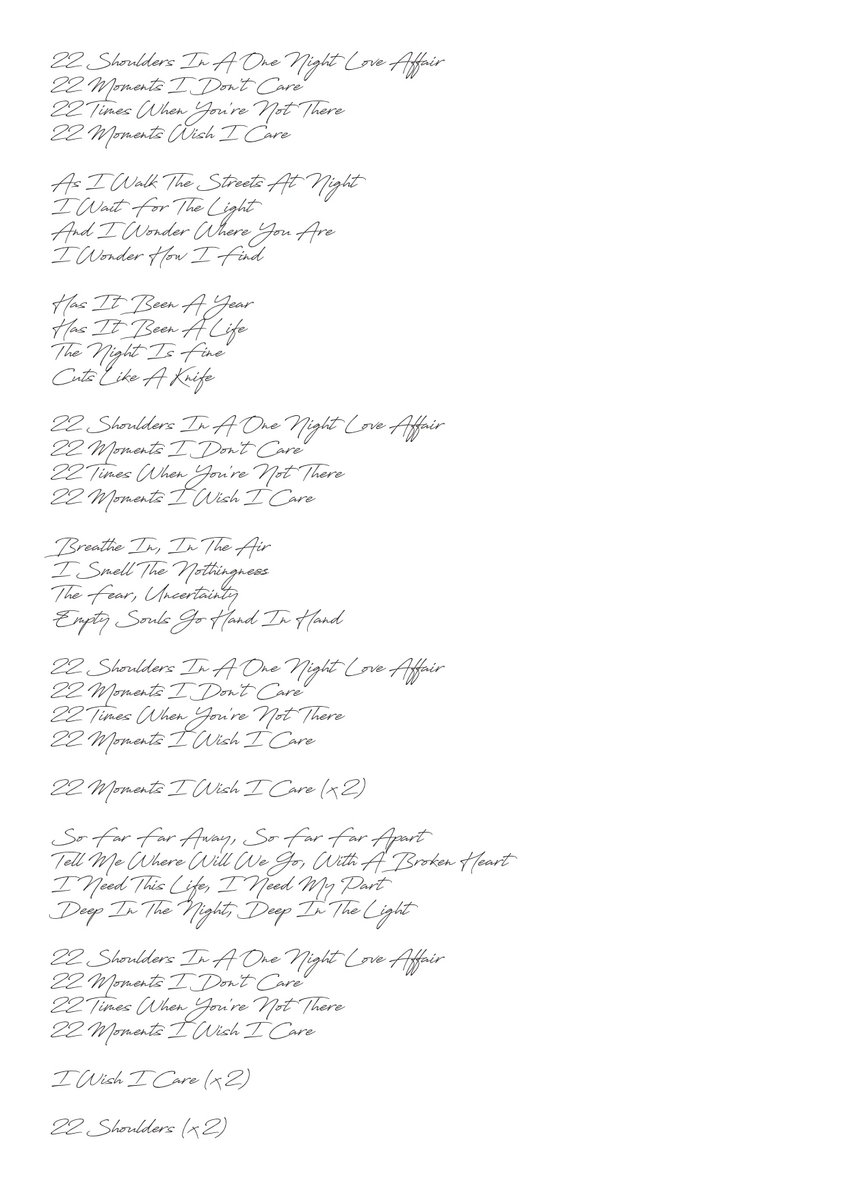 22 Shoulders In A One Night Love Affair
22 Moments I Don't Care
22 Times When You're Not There
22 Moments Wish I Care

As I Walk The Streets At Night
I Wait For The Light
And I Wonder Where You Are
I Wonder How I Find

Has It Been A Year
Has It Been A Life
The Night Is Fine
Cuts Like A Knife

22 Shoulders In A One Night Love Affair
22 Moments I Don't Care
22 Times When You're Not There
22 Moments I Wish I Care

Breathe In, In The Air
I Smell The Nothingness
The Fear, Uncertainty
Empty Souls Go Hand In Hand

22 Shoulders In A One Night Love Affair
22 Moments I Don't Care
22 Times When You're Not There
22 Moments I Wish I Care

22 Moments I Wish I Care (x2)

So Far Far Away, So Far Far Apart
Tell Me Where Will We Go, With A Broken Heart
I Need This Life, I Need My Part
Deep In The Night, Deep In The Light

22 Shoulders In A One Night Love Affair
22 Moments I Don't Care
22 Times When You're Not There
22 Moments I Wish I Care

I Wish I Care (x2)

22 Shoulders (x2)